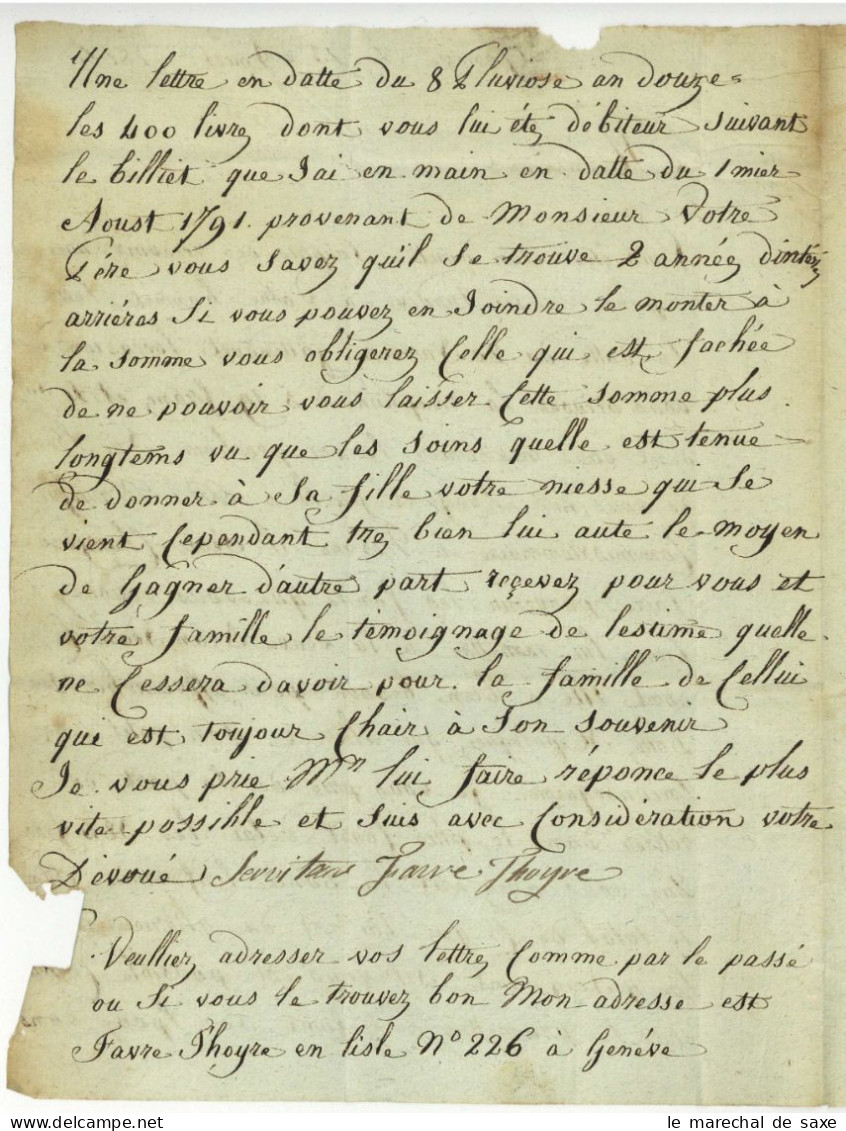 Une lettre en datte du 8 Pluviose an douze=
les 400 livres dont vous lui étes débiteur suivant
le billiet que Jai en main en datte du 1mier
Aoust 1791. provenant de Monsieur Votre
Pére vous savez qu'il se trouve 2 années dintérés
arriéres Si vous pouvez en Joindre le monter à
la somme vous obligerez Celle qui est fachée
de ne pouvoir vous laisser Cette somme plus
longtems vu que les soins quelle est tenue
de donner à Sa fille votre niesse qui Se
vient Cependant tres bien lui aute le moyen
de Gagner d'autre part reçevez pour vous et
votre famille le témoignage de lestime quelle
ne Cessera davoir pour la famille de Cellui
qui est toujour Chair à Son souvenir
Je vous prie Mr lui faire réponce le plus
vite possible et suis avec Considération votre
Dévoué Favre Thoyre
Veulliez adresser vos lettres Comme par le passé
ou Si vous le trouvez bon Mon adresse est
Favre Thoyre en lisle No 226 à Genéve
le marechal de saxe